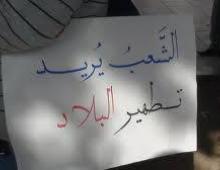 الشَّعبُ يُريد
تطهير البلاد